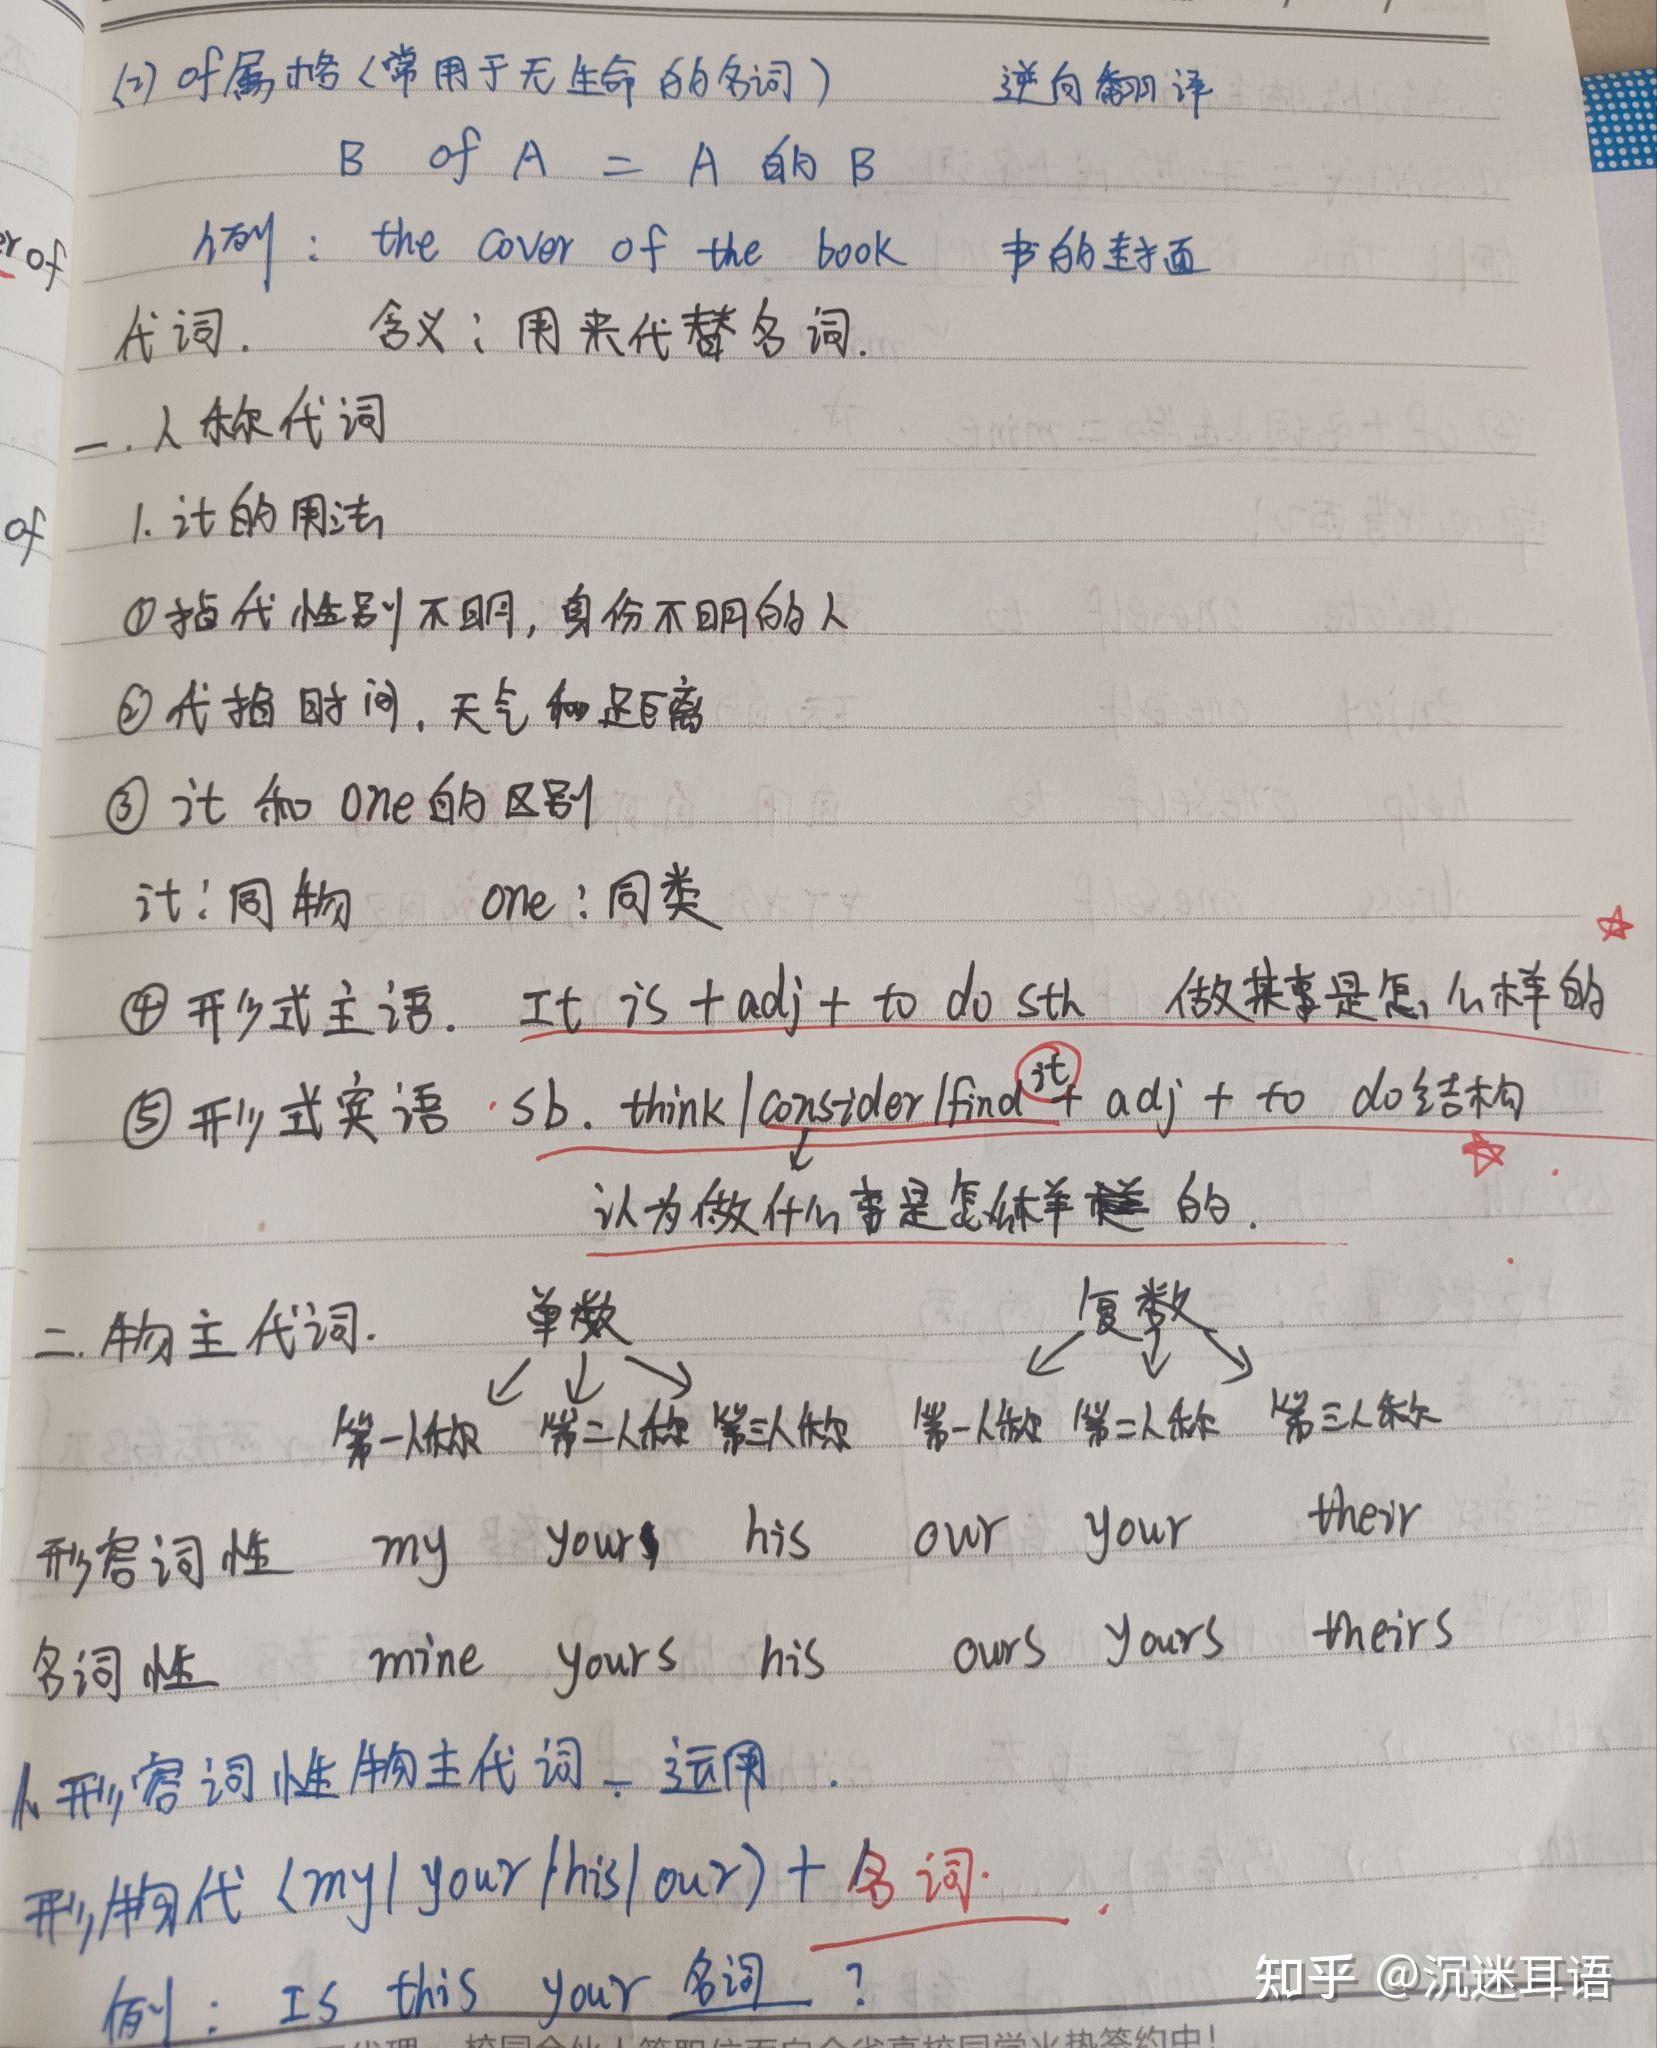 er of
of
(2) of属格(常用于无生命的名词) 逆向翻译
B of A = A 的 B
例: the cover of the book 书的封面
代词. 含义:用来代替名词.
一.人称代词
1. it的用法
①指代性别不明,身份不明的人
②代指时间,天气和距离
③ it 和 one的区别
it:同物 one:同类
④形式主语. It is + adj + to do sth 做某事是怎么样的
⑤形式宾语 sb. think/consider/find it + adj + to do结构
认为做什么事是怎么样的.
二.物主代词. 单数 复数
第一人称 第二人称 第三人称 第一人称 第二人称 第三人称
形容词性 my your his our your their
名词性 mine yours his ours yours theirs
1.形容词性物主代词 运用.
形物代(my/your/his/our)+名词.
例: Is this your 名词 ?
知乎 @沉迷耳语